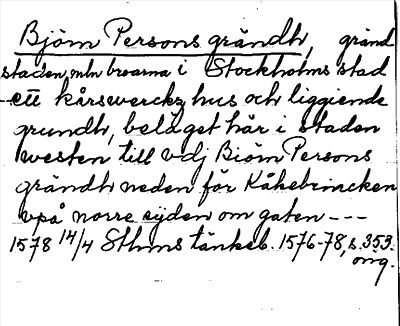 Bjöm Persons grändh, gränd
staden, mln broarna i Stockholms stad
--ett kårswerckz hus och liggiende
grundh, beläget här i staden
westen till vdj Biöm Persons
grändh neden för Kåkebrincken
vpå norre sijden om gaten ---
1578 14/4 Sthms tänkeb. 1576-78, s. 353.
omg.